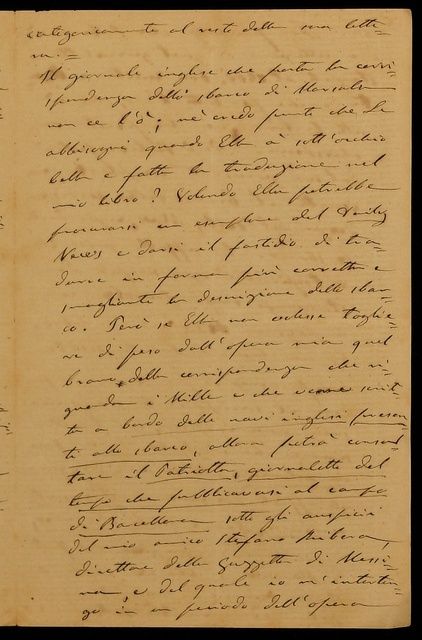 categoricamente al resto della sua lette=
ra.=
Il giornale inglese che porta la corri=
spondenza dello sbarco di Marsala
non ce l'ò; nè credo punto che Le
abbisogni quando Ella à sott'occhio
bella e fatta la traduzione nel
mio libro? Volendo Ella potrebbe
procurarsi un esemplare del Daily
News e darsi il fastidio di tra=
durre in forma più corretta e
smagliante la descrizione dello sbar=
co. Però se Ella non volesse toglie=
re di peso dall'opera mia quel
brano della corrispondenza che ri=
guarda i Mille e che venne scrit=
ta a bordo delle navi inglesi presen=
ti allo sbarco, allora potrà consul=
tare il Patriotta, giornaletto del
tempo che pubblicavasi al campo
di Barcellona sotto gli auspicii
del mio amico Stefano Ribera,
direttore della Gazzetta di Messi=
na, e del quale io m'intratten=
go in un periodo dell'opera